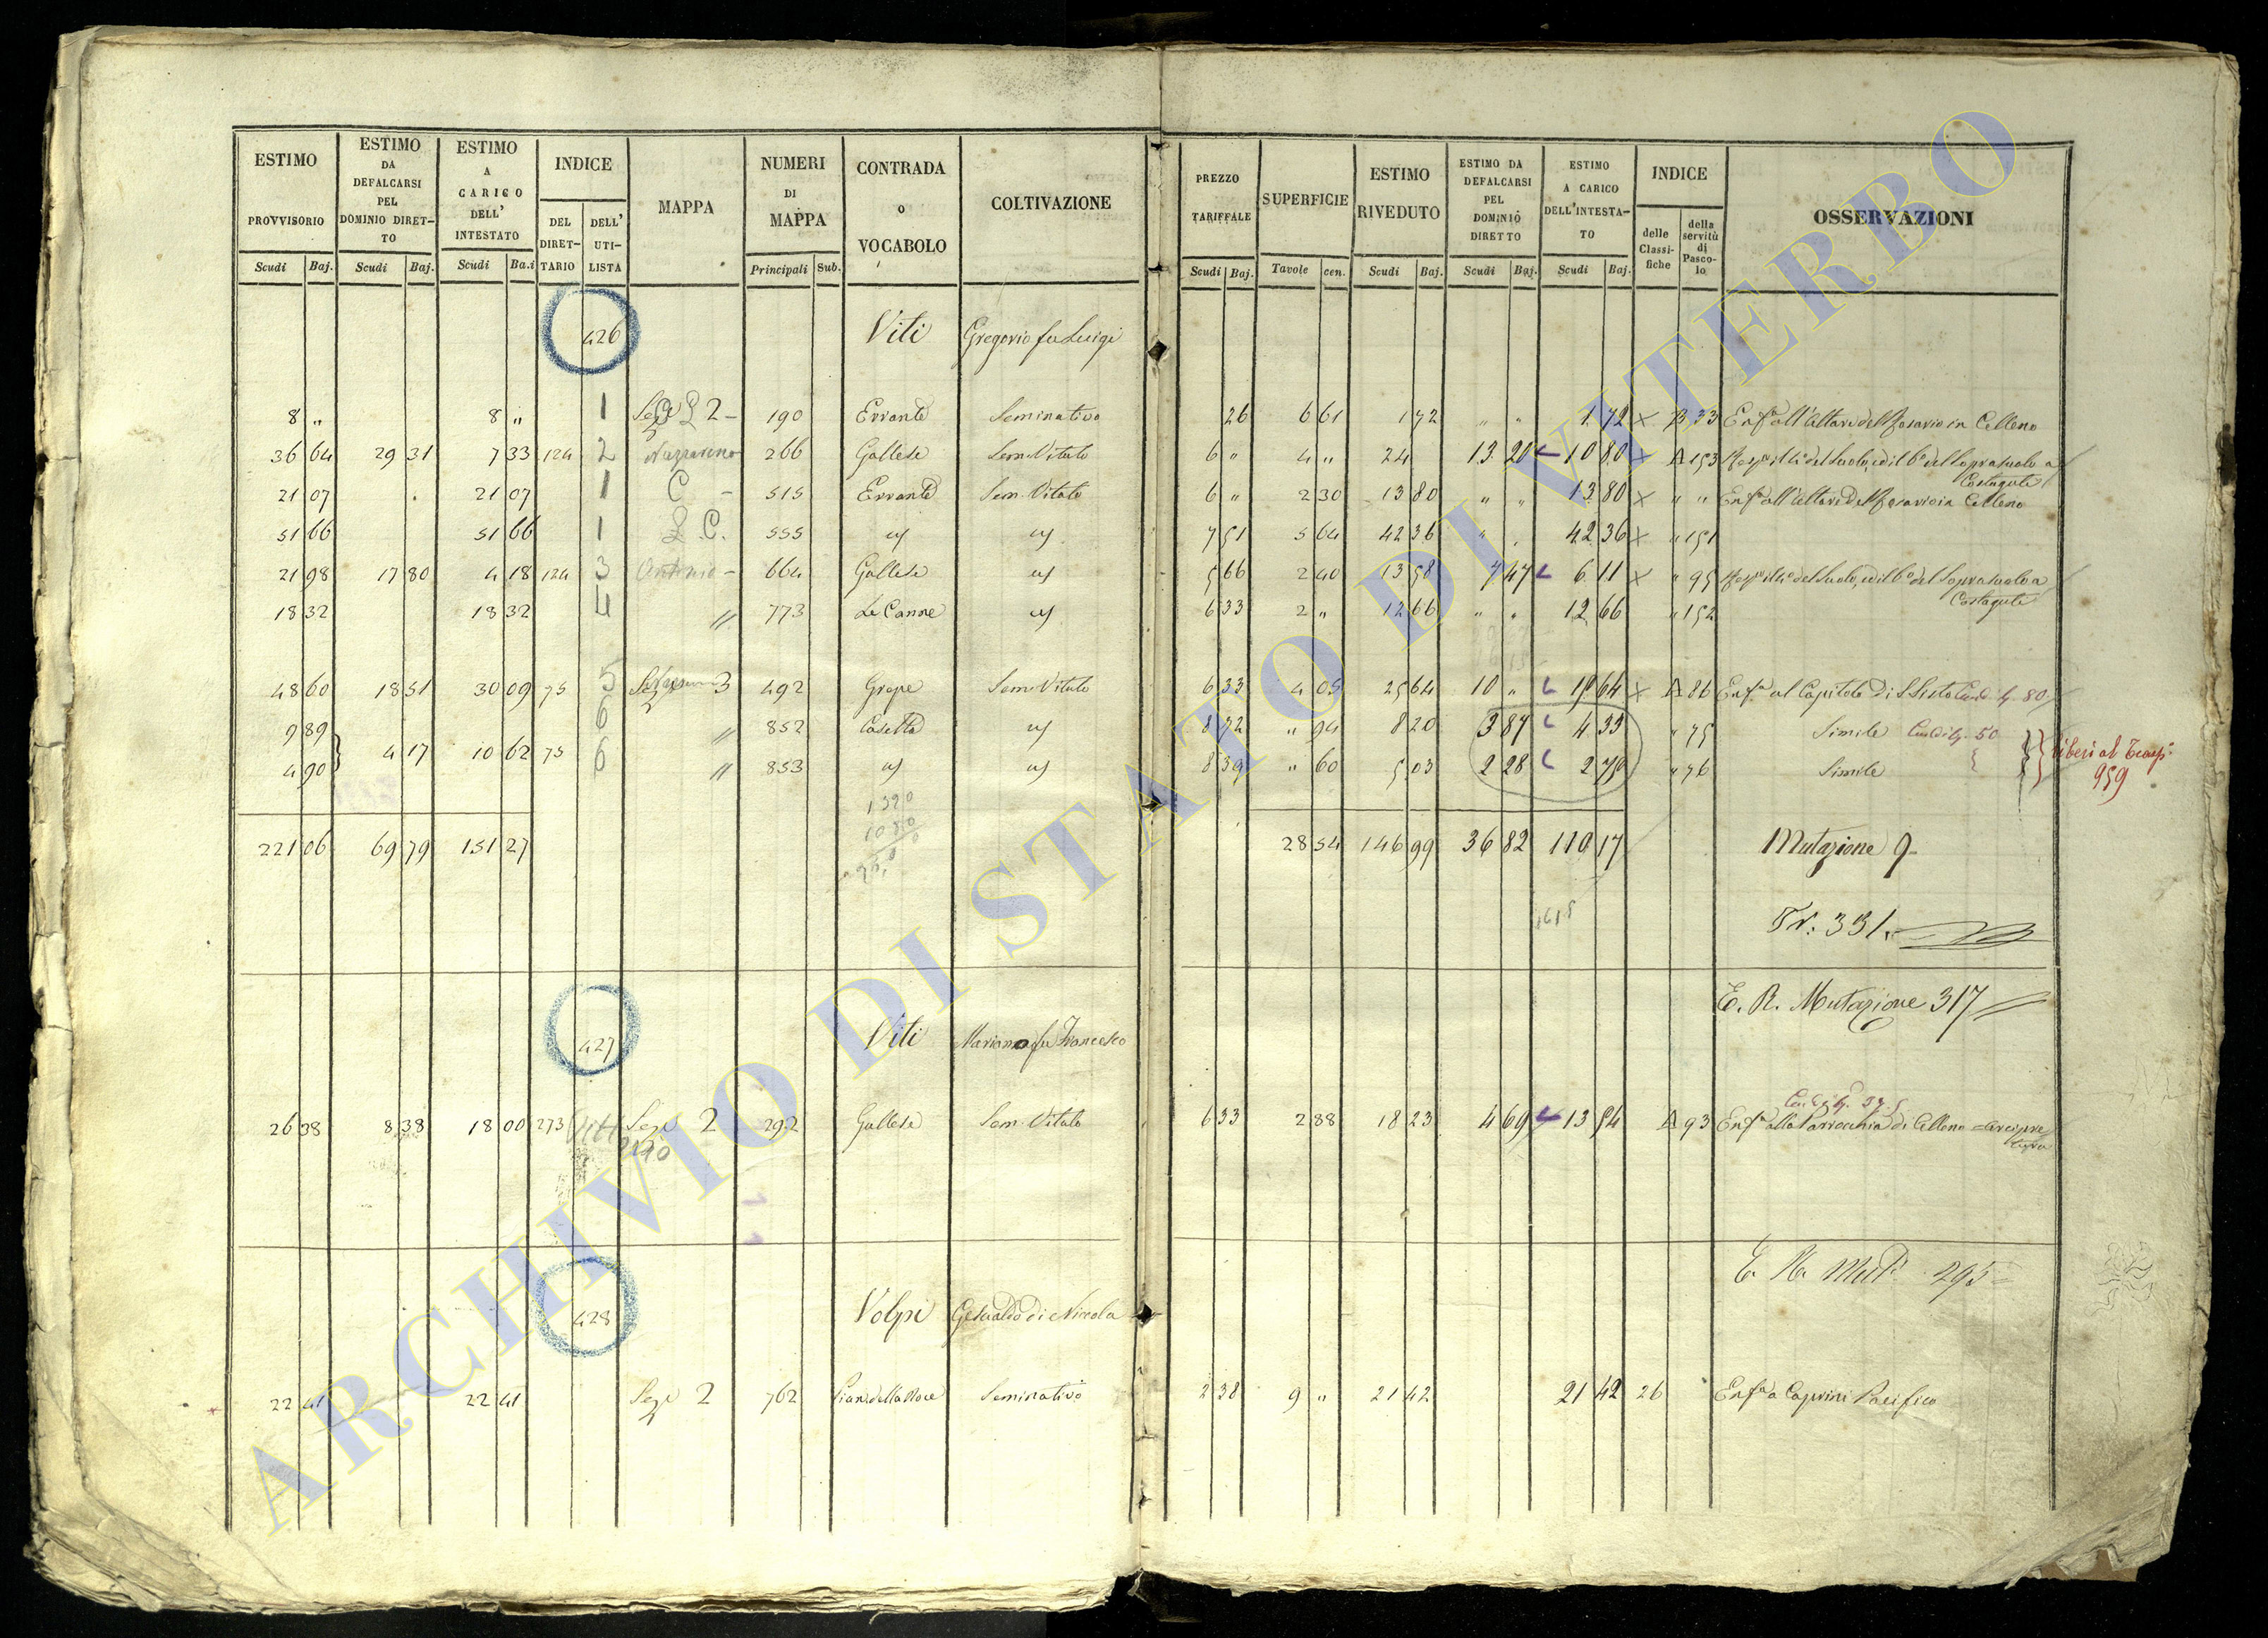 ESTIMO PROVVISORIO Scudi Baj.
ESTIMO DA DEFALCARSI PEL DOMINIO DIRETTO Scudi Baj.
ESTIMO A CARICO DELL' INTESTATO Scudi Ba.i
INDICE DEL DIRETTARIO DELL' UTILISTA
MAPPA
NUMERI DI MAPPA Principali Sub.
CONTRADA O VOCABOLO
COLTIVAZIONE
PREZZO TARIFFALE Scudi Baj.
SUPERFICIE Tavole cen.
ESTIMO RIVEDUTO Scudi Baj.
ESTIMO DA DEFALCARSI PEL DOMINIO DIRETTO Scudi Baj.
ESTIMO A CARICO DELL'INTESTATO Scudi Baj.
INDICE delle Classifiche della servitù di Pascolo
OSSERVAZIONI
426 Viti Gregorio fu Luigi
8 " 8 " 1 Sez.e 2 - 190 Errante Seminativo 26 6 61 1 72 " " 1 72 x B 33 Enf.a all'Altare del Rosario in Celleno
36 64 29 31 7 33 124 2 Nazzareno 266 Gallese Sem. Vitato 6 " 4 " 24 13 20 10 80 x A 153 del Suolo, ed il 6.o del Soprasuolo a Costaguti
21 07 21 07 1 C - 515 Errante Sem. Vitato 6 " 2 30 13 80 " " 13 80 x " " Enf.a all'Altare del Rosario in Celleno
51 66 51 66 1 L.C. 555 7 51 5 64 42 36 " " 42 36 x " 151
21 98 17 80 4 18 124 3 Antonio - 664 Gallese 5 66 2 40 13 58 7 47 6 11 x " 95 del Suolo, ed il 6.o del Soprasuolo a Costaguti
18 32 18 32 4 " 773 Le Canne 6 33 2 " 12 66 " " 12 66 " 152
48 60 18 51 30 09 75 5 3 492 Grepe Sem. Vitato 6 33 4 05 25 64 10 " 15 64 x A 86 Enf.a al Capitolo di S. Sisto 80
9 89 6 " 852 Casetta 8 72 " 94 8 20 3 87 4 33 " 75 Simile 50
4 90 4 17 10 62 75 6 " 853 8 39 " 60 5 03 2 28 2 75 " 76 Simile
liberi al
959
1320
1080
221 06 69 79 151 27 28 54 146 99 36 82 110 17 Mutazione 9
Tr: 331
E. R. Mutazione 317
427 Viti Mariano fu Francesco
26 38 8 38 18 00 273 Sez.e 2 292 Gallese Sem. Vitato 6 33 2 88 18 23 4 69 13 54 A 93 Enf.a alla Parrocchia di Celleno = Arcipretura
E. R. Mut.e 295
428 Volpi Gesualdo di Nicola
22 41 22 41 Sez.e 2 762 Piano della Noce Seminativo 2 38 9 " 21 42 21 42 26 Enf.a a Caprini Pacifico
ARCHIVIO DI STATO DI VITERBO